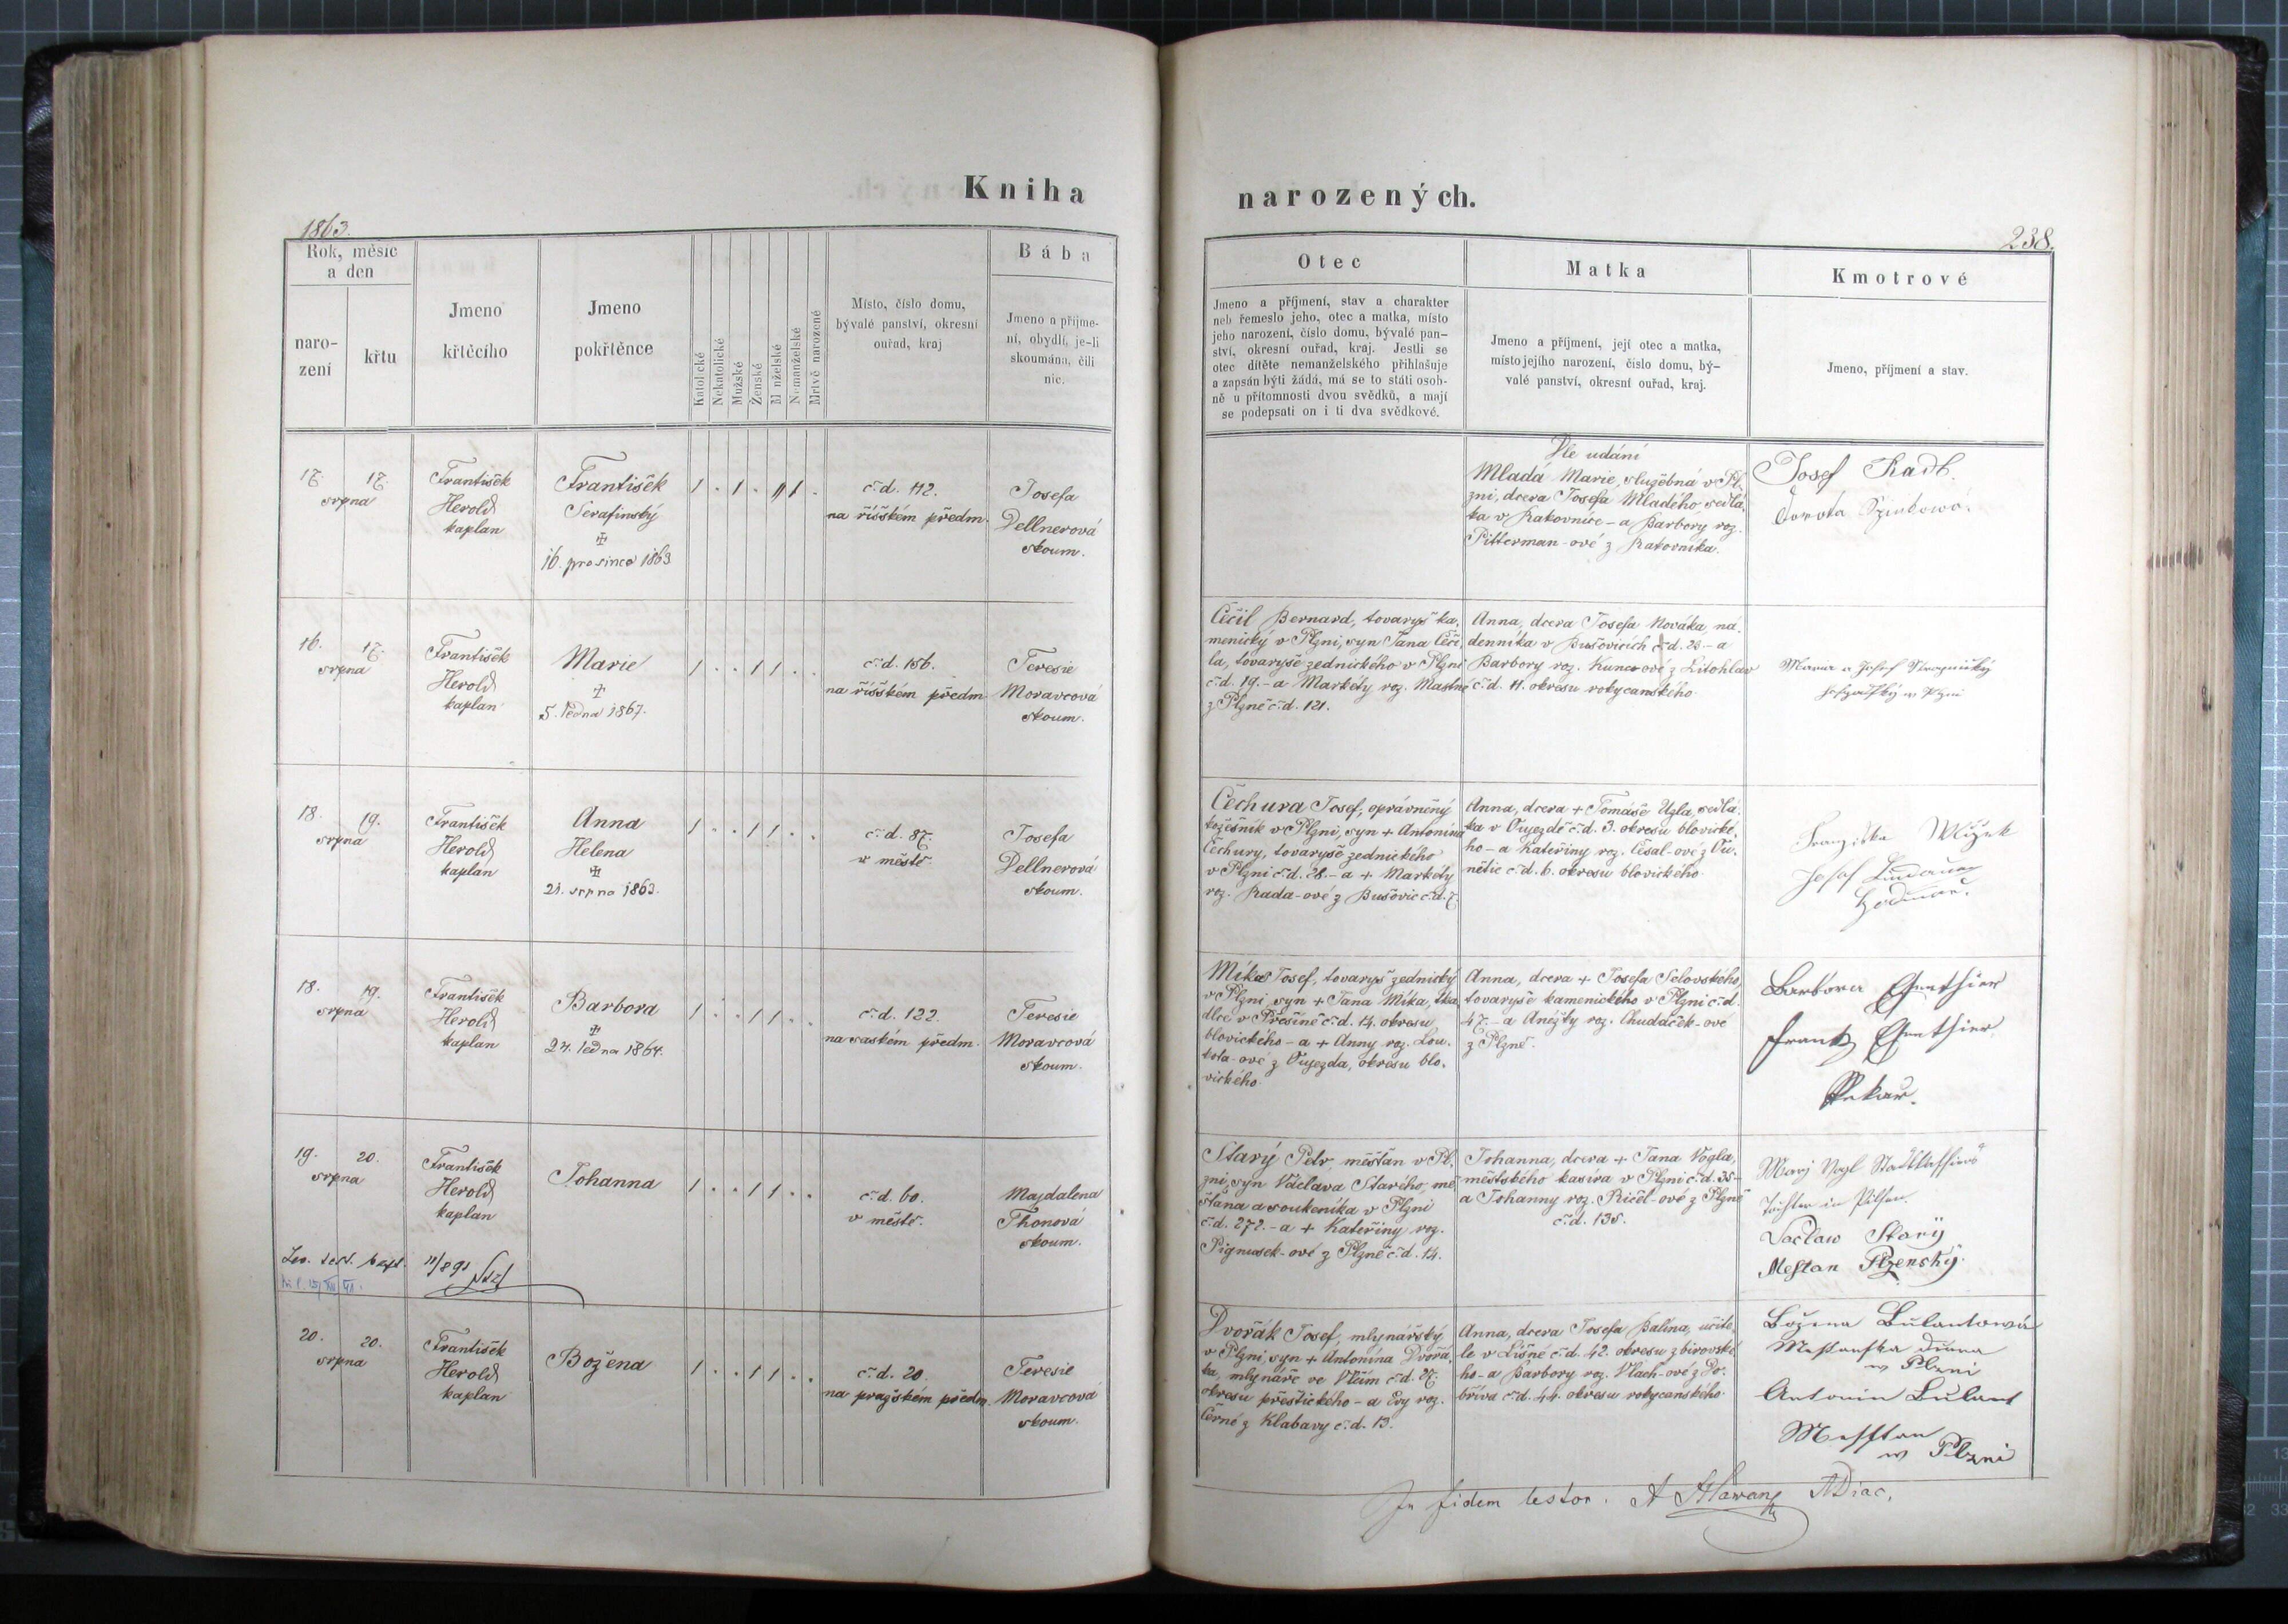 Kniha
1863.
Rok, měsíc
a den
naro-
zení
křtu
Jmeno
křtěcího
Jmeno
pokřtěnce
Katolické
Nekatolické
Mužské
Ženské
Manželské
Nemanželské
Mrtvě narozené
Místo, číslo domu,
bývalé panství, okresní
ouřad, kraj
Bába
Jmeno a příjme-
ní, obydlí, je-li
skoumána, čili
nic.
17. 17.
srpna
František
Herold
kaplan
František
Serafinský
16. prosince 1863
1 . 1 . 1 .
č. d. 112.
na říšském předm.
Josefa
Dellnerová
skoum.
16. 17.
srpna
František
Herold
kaplan
Marie
5. ledna 1867.
1 . . 1 1 . .
č. d. 156.
na říšském předm
Teresie
Moravcová
skoum.
18. 19.
srpna
František
Herold
kaplan
Anna
Helena
21. srpna 1863.
1 . . 1 1 . .
č. d. 87.
v městě.
Josefa
Dellnerová
skoum.
18. 19.
srpna
František
Herold
kaplan
Barbora
24. ledna 1864.
1 . . 1 1 . .
č. d. 122.
na saském předm.
Teresie
Moravcová
skoum.
19. 20.
srpna
František
Herold
kaplan
Johanna
1 . . 1 1 . .
č. d. 60.
v městě.
Majdalena
Thonová
skoum.
11/891
20. 20.
srpna
František
Herold
kaplan
Božena
1 . . 1 1 . .
č. d. 20.
na pražském předm.
Teresie
Moravcová
skoum.
narozených.
238.
Otec
Jmeno a příjmení, stav a charakter
neb řemeslo jeho, otec a matka, místo
jeho narození, číslo domu, bývalé pan-
ství, okresní ouřad, kraj. Jestli se
otec dítěte nemanželského přihlašuje
a zapsán býti žádá, má se to státi osob-
ně u přítomnosti dvou svědků, a mají
se podepsati on i ti dva svědkové.
Matka
Jmeno a příjmení, její otec a matka,
místo jejího narození, číslo domu, bý-
valé panství, okresní ouřad, kraj.
Kmotrové
Jmeno, příjmení a stav.
Dle udání
Mladá Marie, služebná v Pl-
zni, dcera Josefa Mladého sedlá-
ka v Rakovníce - a Barbory roz.
Pitterman-ové z Rakovníka.
Josef Radl.
Dorota
Čečil Bernard, tovaryš ka-
menický v Plzni, syn Jana Čeči-
la, tovaryše zednického v Plzni
č. d. 19. - a Markéty roz. Mastné
z Plzně č. d. 121.
Anna, dcera Josefa Nováka, ná-
denníka v Bušovicích č. d. 28 - a
Barbory roz. Kuncové z Litohlav
č. d. 11. okresu rokycanského.
Maria a Josef
w Plzni
Čechura Josef, oprávněný
kožešník v Plzni, syn + Antonína
Čechury, tovaryše zednického
v Plzni č. d. 28. - a + Markéty
roz. Rada-ové z Bušovic č. d. 7.
Anna, dcera + Tomáše Ugla, sedlá-
ka v Oujezdě č. d. 3. okresu blovické-
ho - a Kateřiny roz. Česal-ové z Ou-
nětic č. d. 6. okresu blovického.
Franziska Wlžek
Josef
Míka Josef, tovaryš zednický
v Plzni, syn + Jana Míka, tka-
dlce v Přešíně č. d. 14. okresu
blovického - a + Anny roz. Lou-
kota-ové z Oujezda, okresu blo-
vického.
Anna, dcera + Josefa Selovského,
tovaryše kamenického v Plzni č. d.
47. - a Anežky roz. Chudáček-ové
z Plzně.
Barbora Genthier
Frantz Genthier
Pekař.
Starý Petr, měšťan v Pl-
zni, syn Václava Starého, mě-
šťana a soukeníka v Plzni
č. d. 272. - a + Kateřiny roz.
Pignusek-ové z Plzně č. d. 14.
Johanna, dcera + Jana Vogla,
městského kasíra v Plzni č. d. 35 -
a Johanny roz. Ričel-ové z Plzně
č. d. 135.
Mari Vogl
Tochter in Pilsen.
Vaclaw Starÿ
Mestan Plzenský.
Dvořák Josef, mlynářský
v Plzni, syn + Antonína Dvořá-
ka, mlynáře ve Vlčím č. d. 27.
okresu přeštického - a Evy roz.
Černé z Klabavy č. d. 13.
Anna, dcera Josefa Palína, učite-
le v Lišné č. d. 42. okresu zbirovské-
ho - a Barbory roz. Vlach-ové z Do-
bříva č. d. 44. okresu rokycanského.
Božena Bulantowá
w Plzni
Antonin Bulant
Messtan
w Plzni
In fidem testor. A Hlawan ADiac.